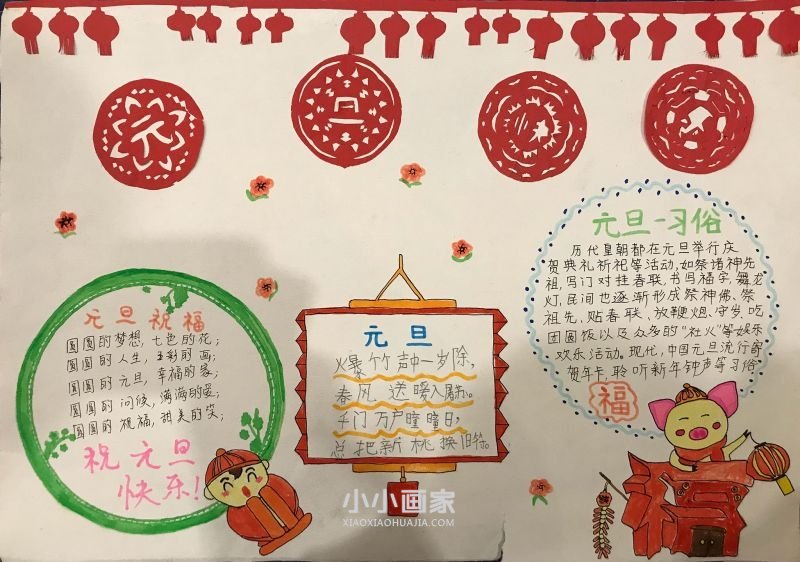 元
旦
元旦祝福
圆圆的梦想，七色的花；
圆圆的人生，五彩的画；
圆圆的元旦，幸福的家；
圆圆的问候，满满的爱；
圆圆的祝福，甜美的笑；
祝元旦
快乐！
元旦
爆竹声中一岁除，
春风送暖入屠苏。
千门万户曈曈日，
总把新桃换旧符。
元旦-习俗
历代皇朝都在元旦举行庆
贺典礼祈祀等活动，如祭诸神先
祖，写门对挂春联，书写福字，舞龙
灯，民间也逐渐形成祭神佛、祭
祖先、贴春联、放鞭炮、守岁、吃
团圆饭以及众多的“社火”等娱乐
欢乐活动。现代，中国元旦流行寄
贺年卡，聆听新年钟声等习俗
福
小小画家
XIAOXIAOHUAJIA.COM